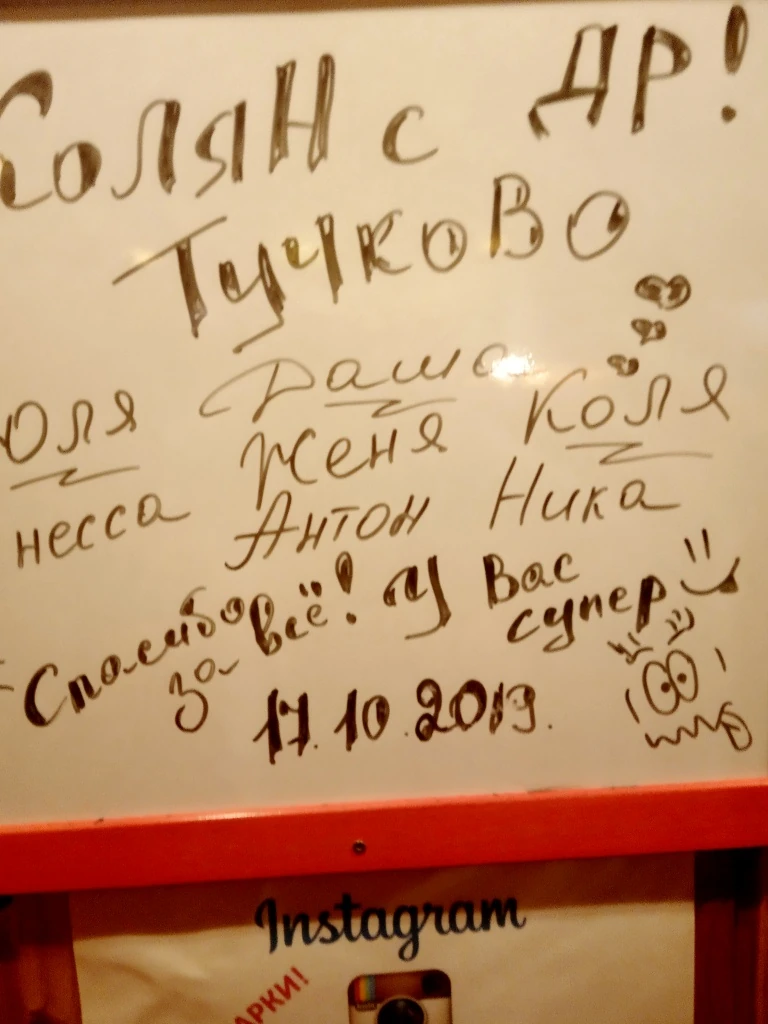 Колян с ДР!
Тучково
Юля Даша Коля
несса Женя
Антон Ника
Спасибо за всё! У Вас супер
17.10.2019.
Instagram
АРКИ!